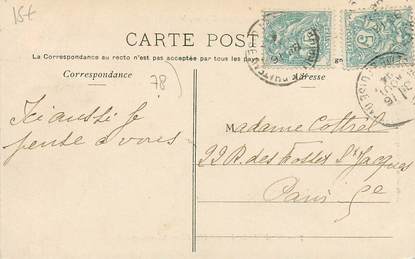 15€
CARTE POST
La Correspondance au recto n'est pas acceptée par tous les pays
Correspondance
Adresse
78)
Ici aussi je
pense à vous
Madame Cottrel
22 R. des Fossés St Jacques
Paris 5e